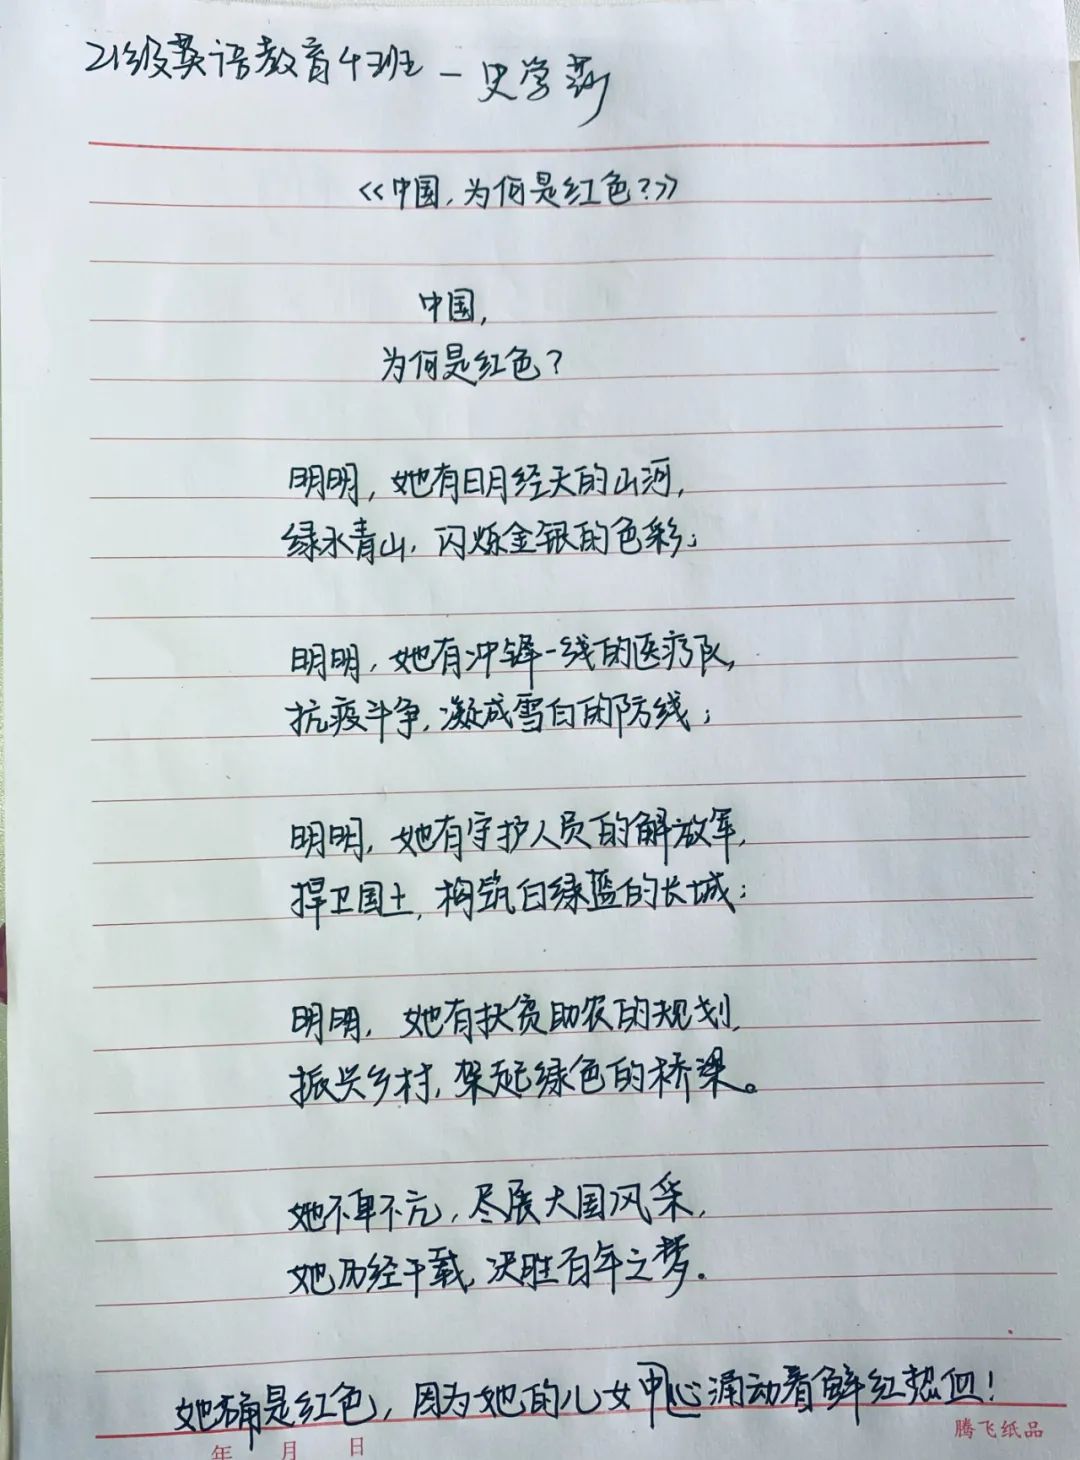 21级英语教育4班—史学莉
《中国，为何是红色？》
中国，
为何是红色？
明明，她有日月经天的山河，
绿水青山，闪烁金银的色彩；
明明，她有冲锋一线的医疗队，
抗疫斗争，凝成雪白的防线；
明明，她有守护人员的解放军，
捍卫国土，构筑白绿蓝的长城；
明明，她有扶贫助农的规划，
振兴乡村，架起绿色的桥梁。
她不卑不亢，尽展大国风采，
她历经千载，决胜百年之梦.
她确是红色，因为她的儿女中心涌动着鲜红热血！
年 月 日
腾飞纸品